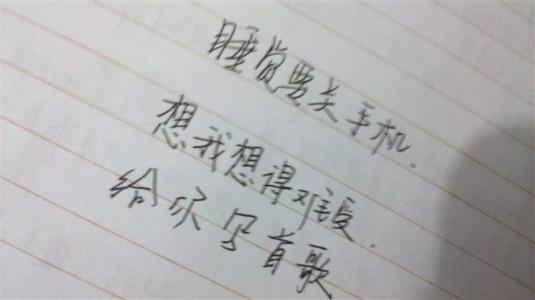 睡觉要关手机.
想我想得难受.
给你写首歌